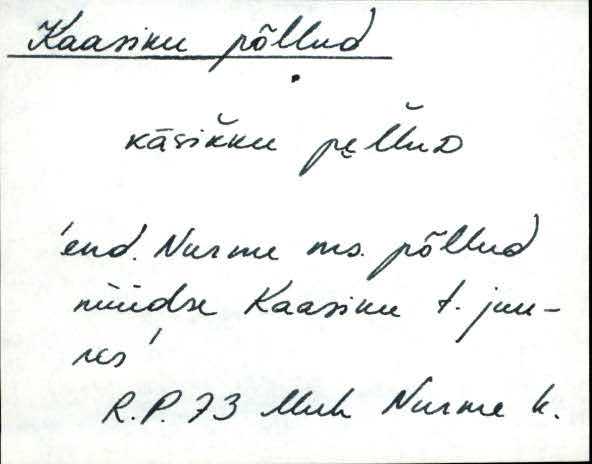 Kaasiku põllud
kāsik̆ku pęl̆lᴜᴅ
'end. Nurme ms. põllud
nüüdse Kaasiku t. juu-
res'
R.P. 73 Muh Nurme k.